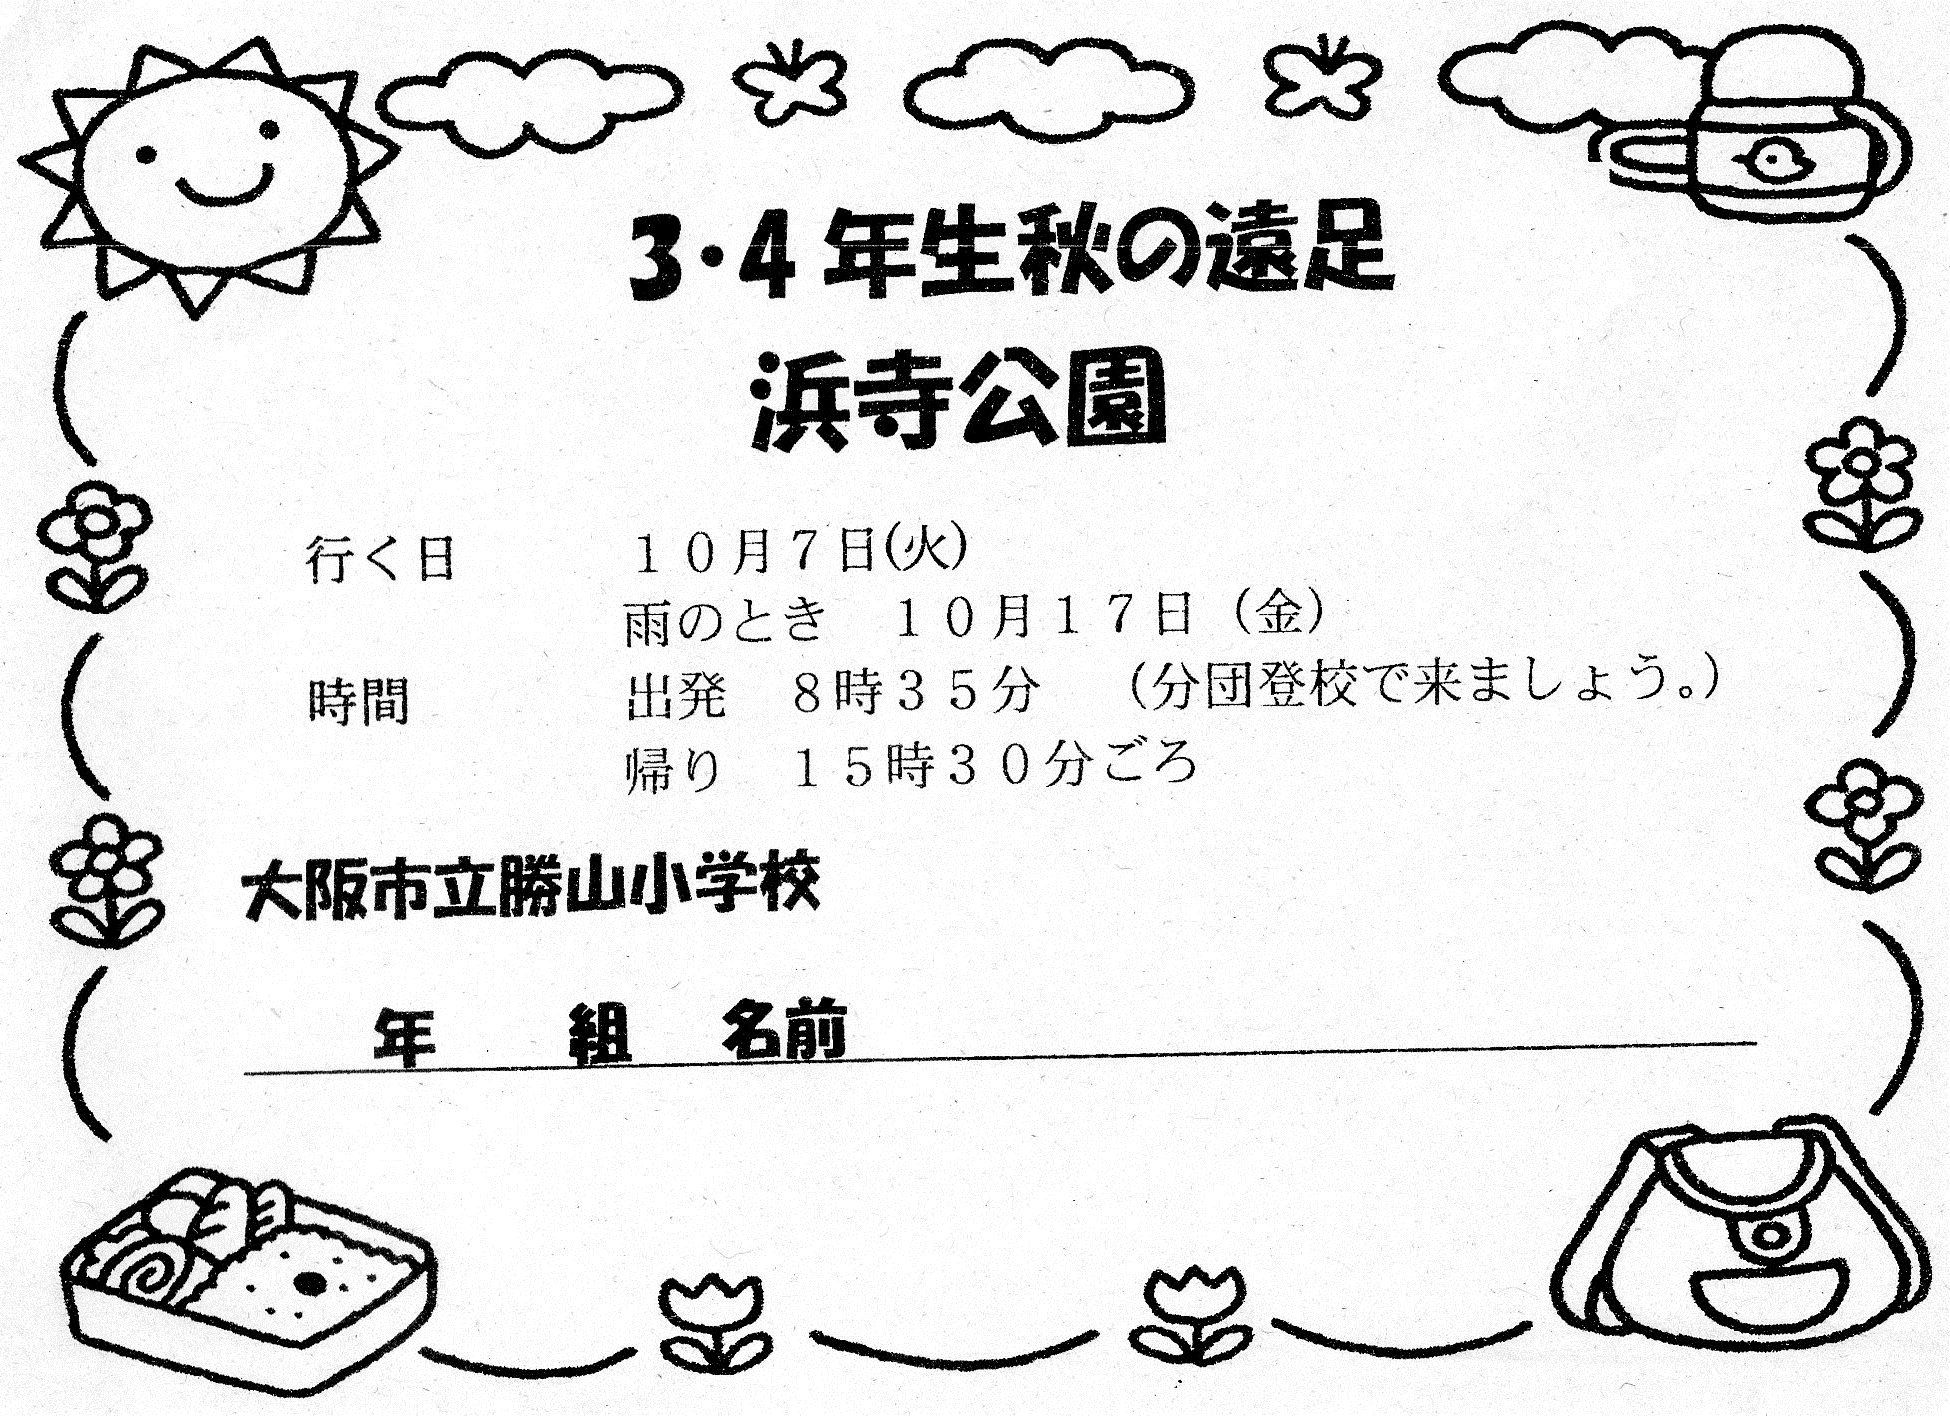 3・4年生秋の遠足
浜寺公園
行く日　１０月７日(火)
雨のとき　１０月１７日（金）
時間　出発　８時３５分　（分団登校で来ましょう。）
帰り　１５時３０分ごろ
大阪市立勝山小学校
年　組　名前